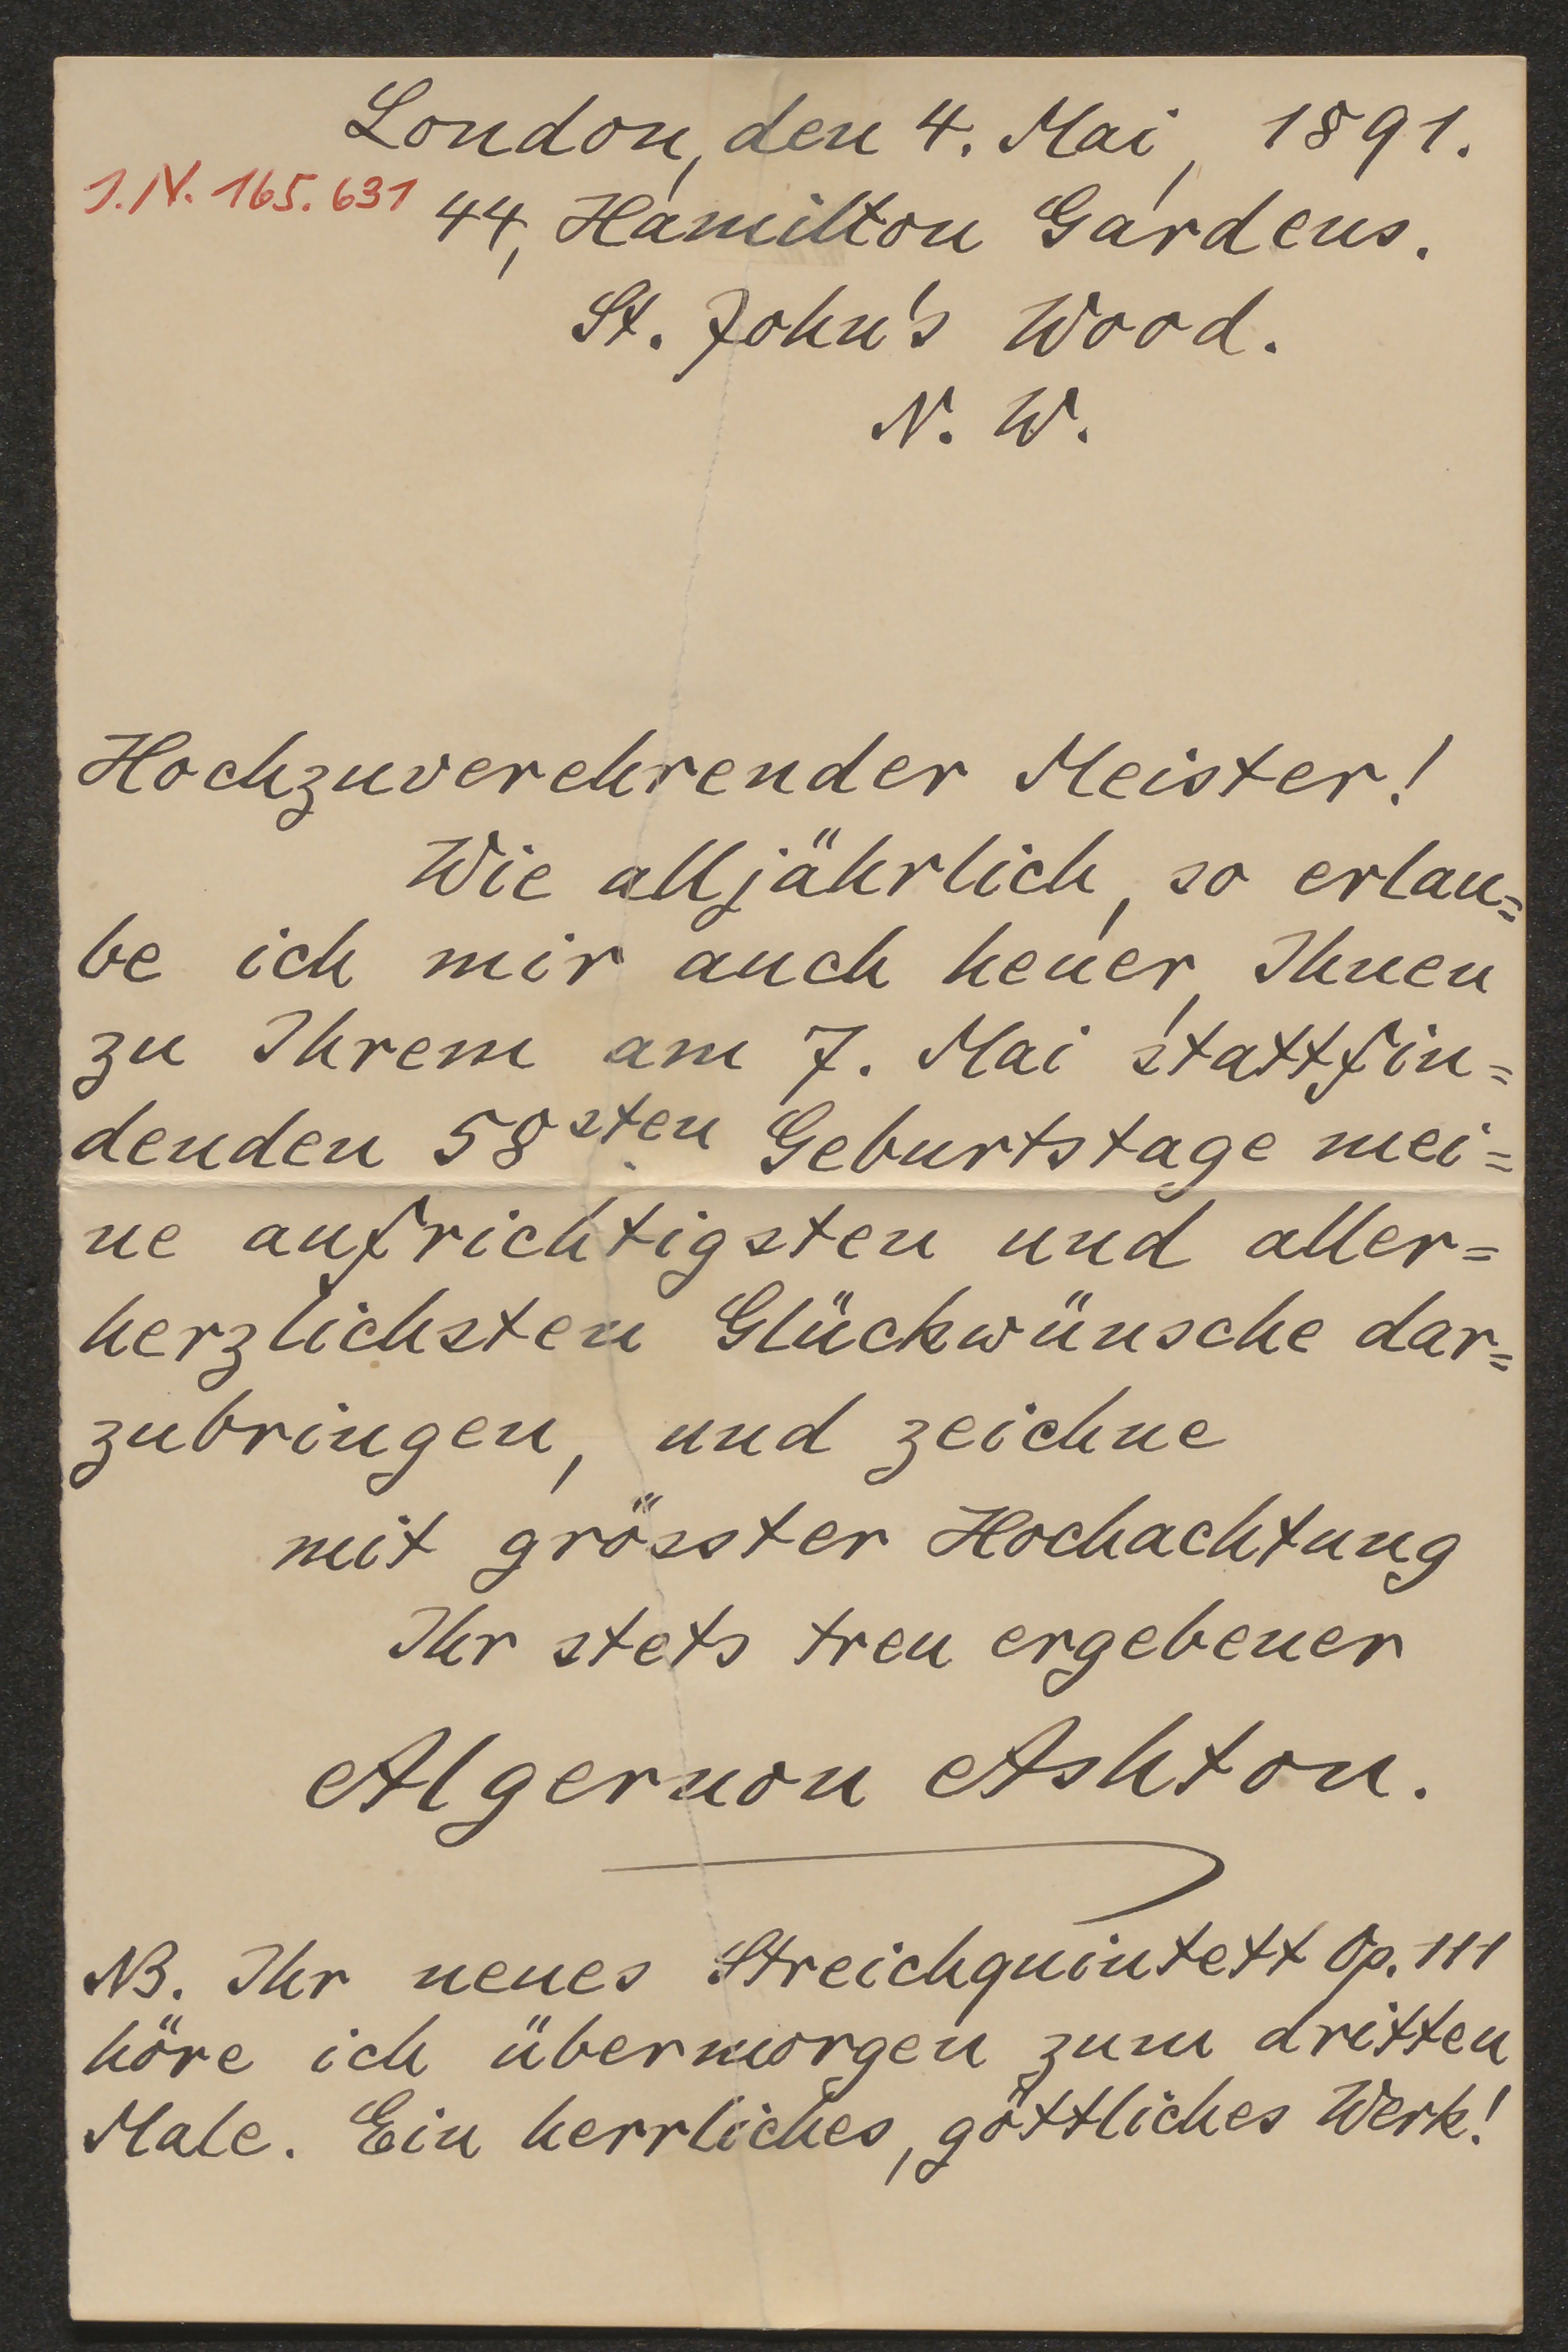 London, den 4. Mai, 1891.
J.N. 165.631
44, Hamilton Gardens.
St. John's Wood.
N. W.
Hochzuverehrender Meister!
Wie alljährlich, so erlau=
be ich mir auch heuer, Ihnen
zu Ihrem am 7. Mai stattfin=
denden 58sten Geburtstage mei=
ne aufrichtigsten und aller=
herzlichsten Glückwünsche dar=
zubringen, und zeichne
mit grösster Hochachtung
Ihr stets treu ergebener
Algernon Ashton.
NB. Ihr neues Streichquintett Op. 111
höre ich übermorgen zum dritten
Male. Ein herrliches, göttliches Werk!